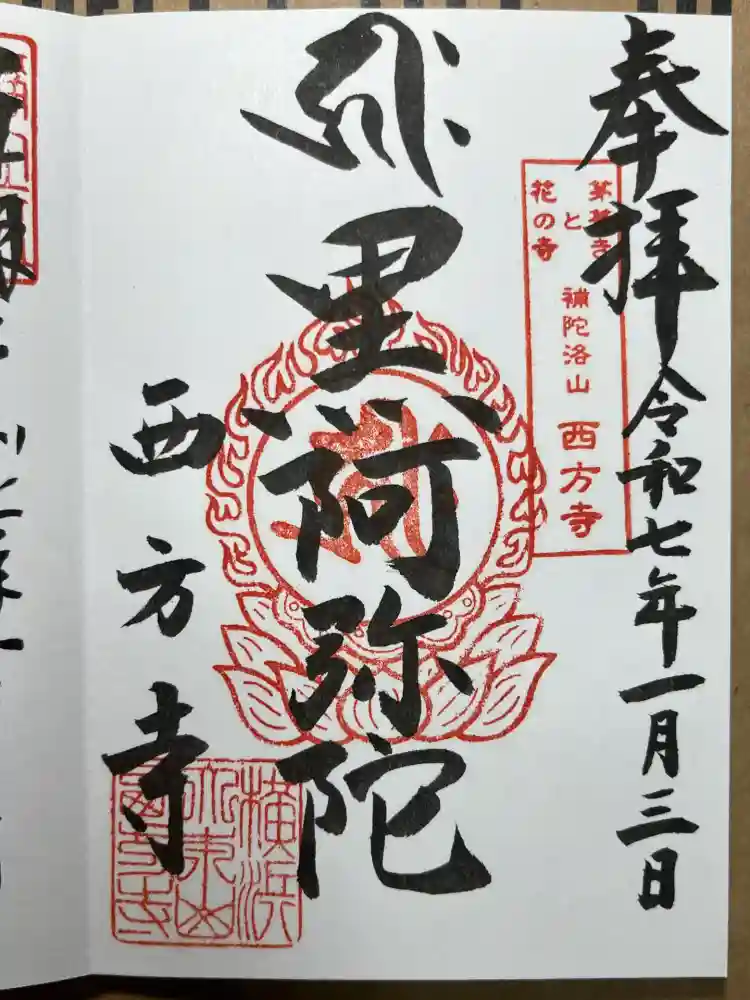 奉拝 令和七年一月三日
茅葺き
と
花の寺
補陀洛山 西方寺
黒阿弥陀
西方寺
横浜
西方寺